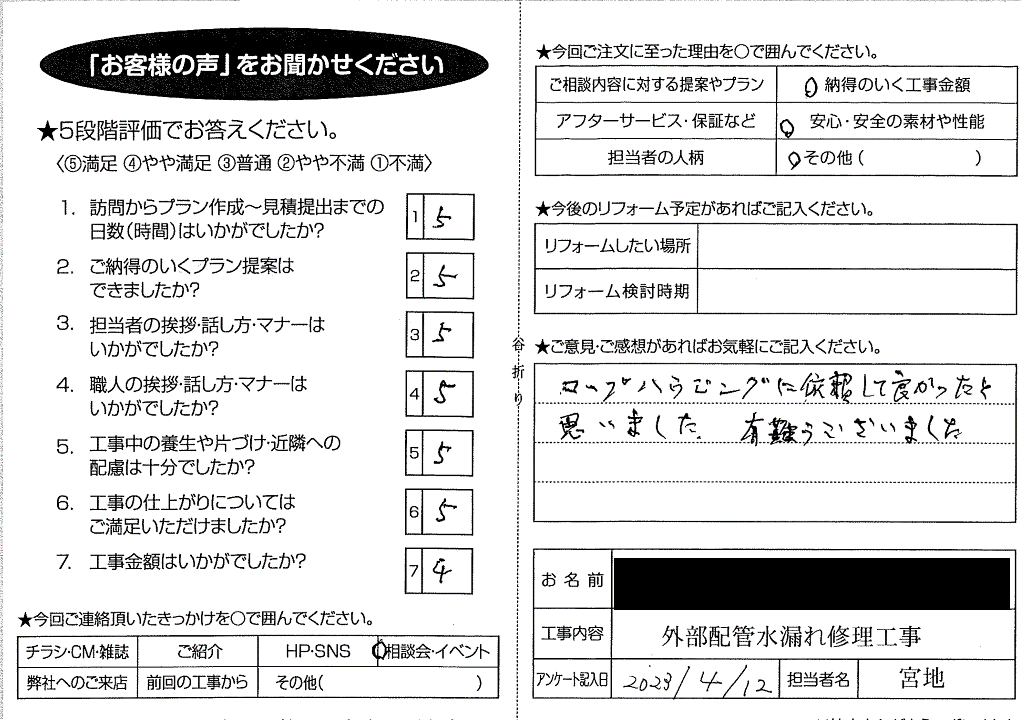 「お客様の声」をお聞かせください
★5段階評価でお答えください。
〈⑤満足 ④やや満足 ③普通 ②やや不満 ①不満〉
1. 訪問からプラン作成〜見積提出までの
日数(時間)はいかがでしたか?
1 5
2. ご納得のいくプラン提案は
できましたか?
2 5
3. 担当者の挨拶・話し方・マナーは
いかがでしたか?
3 5
4. 職人の挨拶・話し方・マナーは
いかがでしたか?
4 5
5. 工事中の養生や片づけ・近隣への
配慮は十分でしたか?
5 5
6. 工事の仕上がりについては
ご満足いただけましたか?
6 5
7. 工事金額はいかがでしたか?
7 4
★今回ご連絡頂いたきっかけを○で囲んでください。
チラシ・CM・雑誌 ご紹介 HP・SNS 相談会・イベント
弊社へのご来店 前回の工事から その他( )
谷折り
★今回ご注文に至った理由を○で囲んでください。
ご相談内容に対する提案やプラン 納得のいく工事金額
アフターサービス・保証など 安心・安全の素材や性能
担当者の人柄 その他( )
★今後のリフォーム予定があればご記入ください。
リフォームしたい場所
リフォーム検討時期
★ご意見・ご感想があればお気軽にご記入ください。
ロップハウジングに依頼して良かったと
思いました。 有難うございました
お名前
工事内容 外部配管水漏れ修理工事
アンケート記入日 2023/4/12 担当者名 宮地